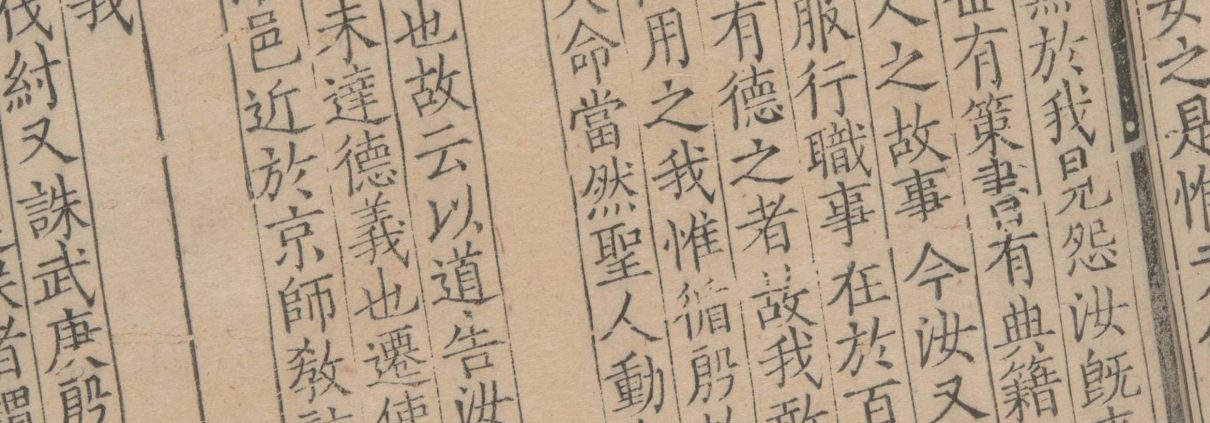 之是惟
無於我見怨汝既
有策書有典籍
人之故事今汝又
服行職事在於百
有德之者故我敢
用之我惟循殷
天命當然聖人動
也故云以道告汝
未達德義也遷使
邑近於京師教
我
伐紂又誅武庚殷
者謂